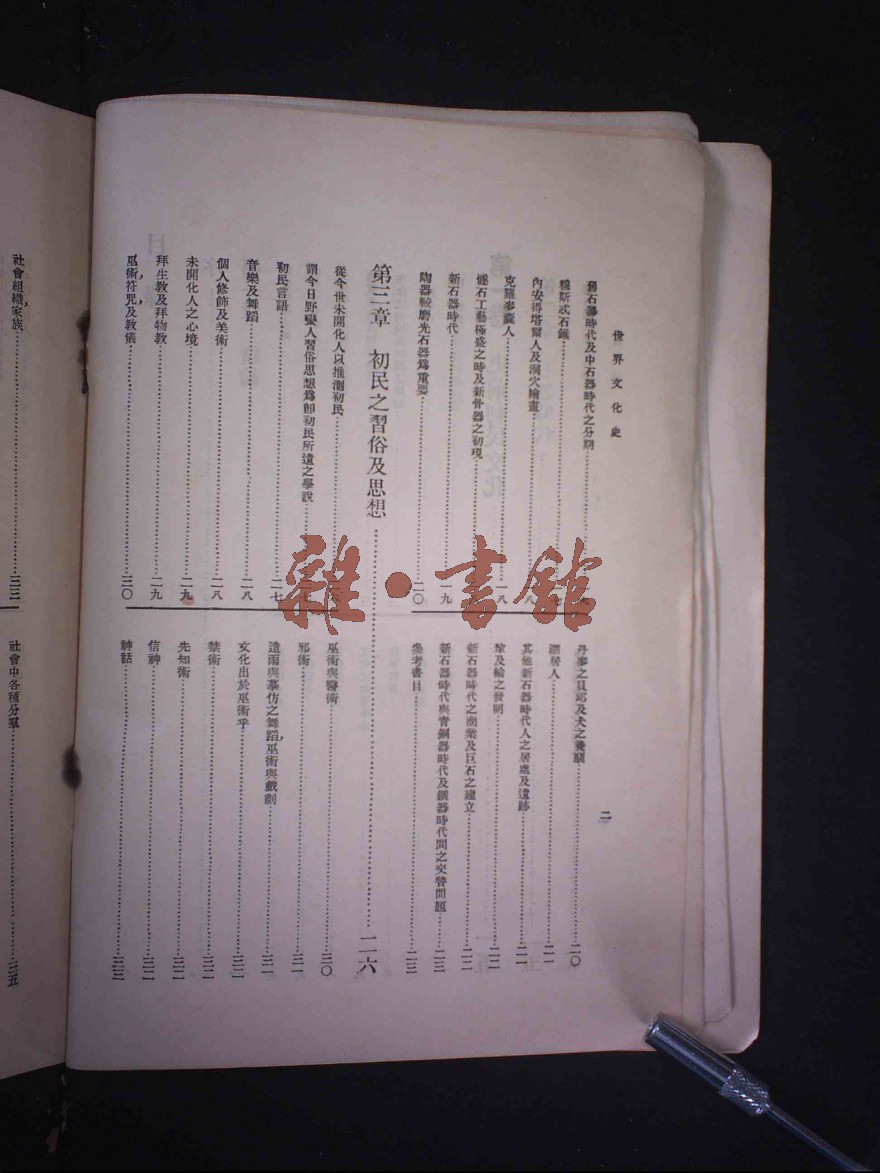 世界文化史
二
舊石器時代及中石器時代之分期
穆斯忒石錐
內安得塔爾人及洞穴繪畫……一八
克羅麥囊人……一八
燧石工藝極盛之時及新骨器之初現
新石器時代……一九
陶器較磨光石器爲重要……二〇
丹麥之貝邱及犬之豢馴……二〇
湖居人……二一
其他新石器時代人之居處及遺跡……二一
犂及輪之發明……二二
新石器時代之商業及巨石之建立……二二
新石器時代與青銅器時代及鐵器時代間之交替問題……二三
參考書目……二三
第三章 初民之習俗及思想……二六
從今世未開化人以推測初民
謂今日野蠻人習俗思想爲卽初民所遺之學說
初民言語……二七
音樂及舞蹈……二八
個人修飾及美術……二八
未開化人之心境……二九
拜生教及拜物教……二九
巫術,符咒,及教儀……三〇
巫術與醫術……三〇
邪術……三一
造雨與摹仿之舞蹈,巫術與戲劇……三一
文化出於巫術乎……三二
禁術……三二
先知術……三二
信神……三三
神話……三三
社會組織,家族……三三
社會中各種分羣……三五
雜·書館